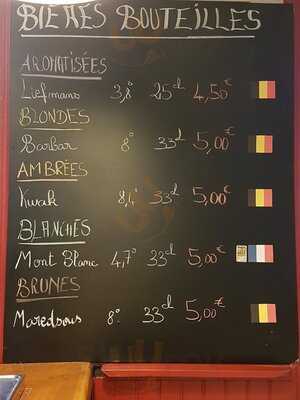 BIÈRES BOUTEILLES
AROMATISÉES
Liefmans 3,8° 25cl 4,50€
BLONDES
Barbar 8° 33cl 5,00€
AMBRÉES
Kwak 8,4° 33cl 5,00€
BLANCHES
Mont Blanc 4,7° 33cl 5,00€
BRUNES
Maredsous 8° 33cl 5,00€